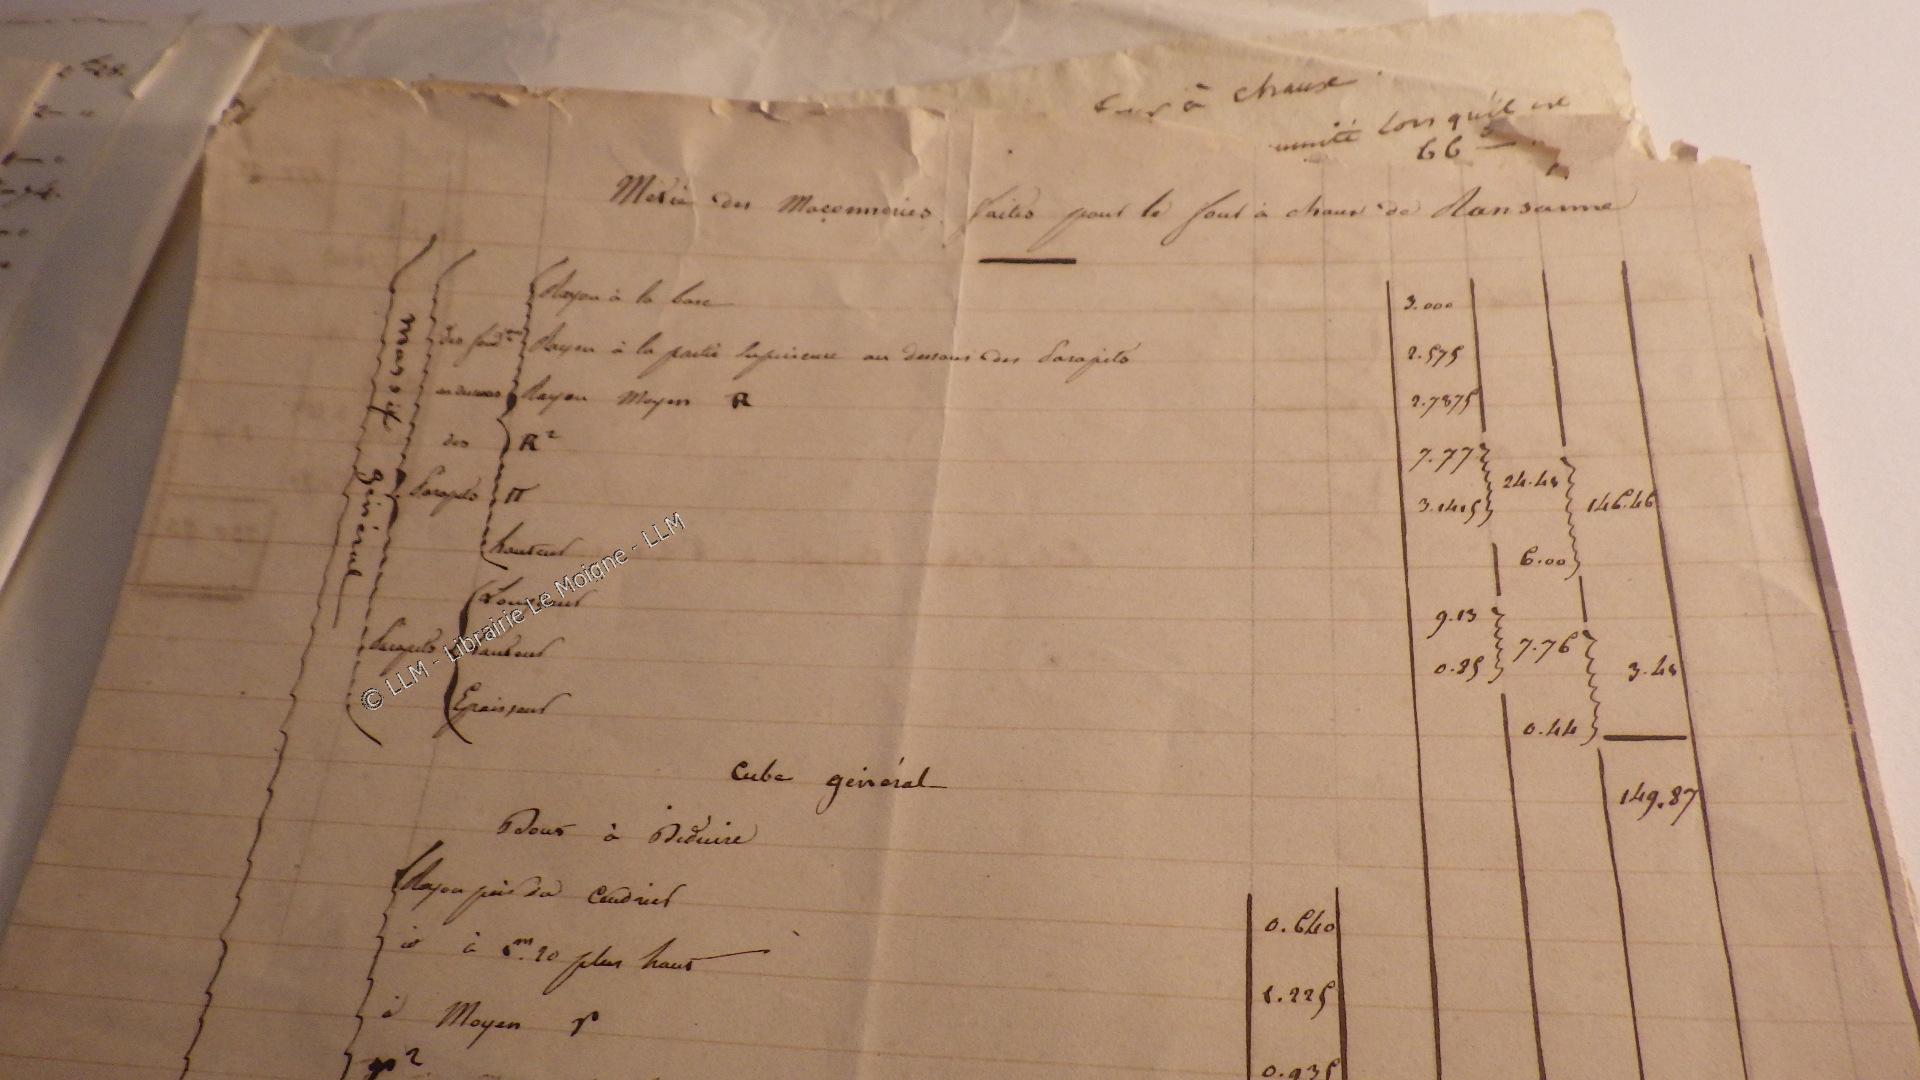 à chaux
unité lorsqu'il est
66
Métré des Maçonneries faites pour le four à chaux de Ransanne
Massif général
Rayon à la base 3.000
des fond.ons Rayon à la partie supérieure au dessous des Parapets 2.575
au dessous Rayon Moyen R 2.7875
des R² 7.77 24.48 146.46
Parapets π 3.1415
hauteur 6.00
Longueur 9.13
Parapets hauteur 0.85 7.76 3.48
Epaisseur 0.44
Cube général 149.87
Dont à Déduire
Rayon près du Cendrier 0.640
id à plus haut 1.225
id Moyen r 0.935
r²
© LLM - Librairie Le Moigne - LLM